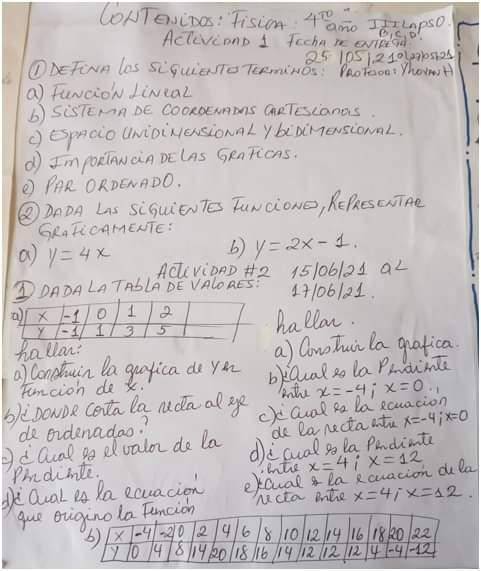 CONTENIDOS: Física: 4TO año III LAPSO.
B, C, D.
ACTIVIDAD 1 FECHA DE ENTREGA
25/05/21 al 27/05/21
① DEFINA los SiGUiENTES TERMINOS: PROFESOR: YHOVANH
a) FUNCIÓN LINEAL
b) SISTEMA DE COORDENADAS CARTESIANAS.
c) ESPACIO UNIDIMENSIONAL Y biDIMENSIONAL.
d) IMPORTANCIA DE LAS GRAFICAS.
e) PAR ORDENADO.
② DADA LAS SiGUiENTES FUNCIONES, REPRESENTAR
GRAFICAMENTE:
a) y = 4x b) y = 2x - 1.
ACTIVIDAD #2 15/06/21 aL
17/06/21.
1 DADA LA TABLA DE VALORES:
a) X -1 0 1 2
Y -1 1 3 5
hallar:
a) Construir la grafica de Y en
Función de x.
b) ¿DONDE Corta la recta al eje
de ordenadas?
c) ¿Cual es el valor de la
Pendiente.
d) ¿Cual es la ecuación
que origino la Función
hallar.
a) Construir la grafica.
b) ¿Cual es la Pendiente
entre x=-4; x=0.
c) ¿Cual es la ecuación
de la recta entre x=-4; x=0
d) ¿Cual es la Pendiente
entre x=4; x=12
e) ¿Cual es la ecuación de la
recta entre x=4; x=12.
b) X -4 -2 0 2 4 6 8 10 12 14 16 18 20 22
Y 0 4 8 14 20 18 16 14 12 12 12 4 -4 -12